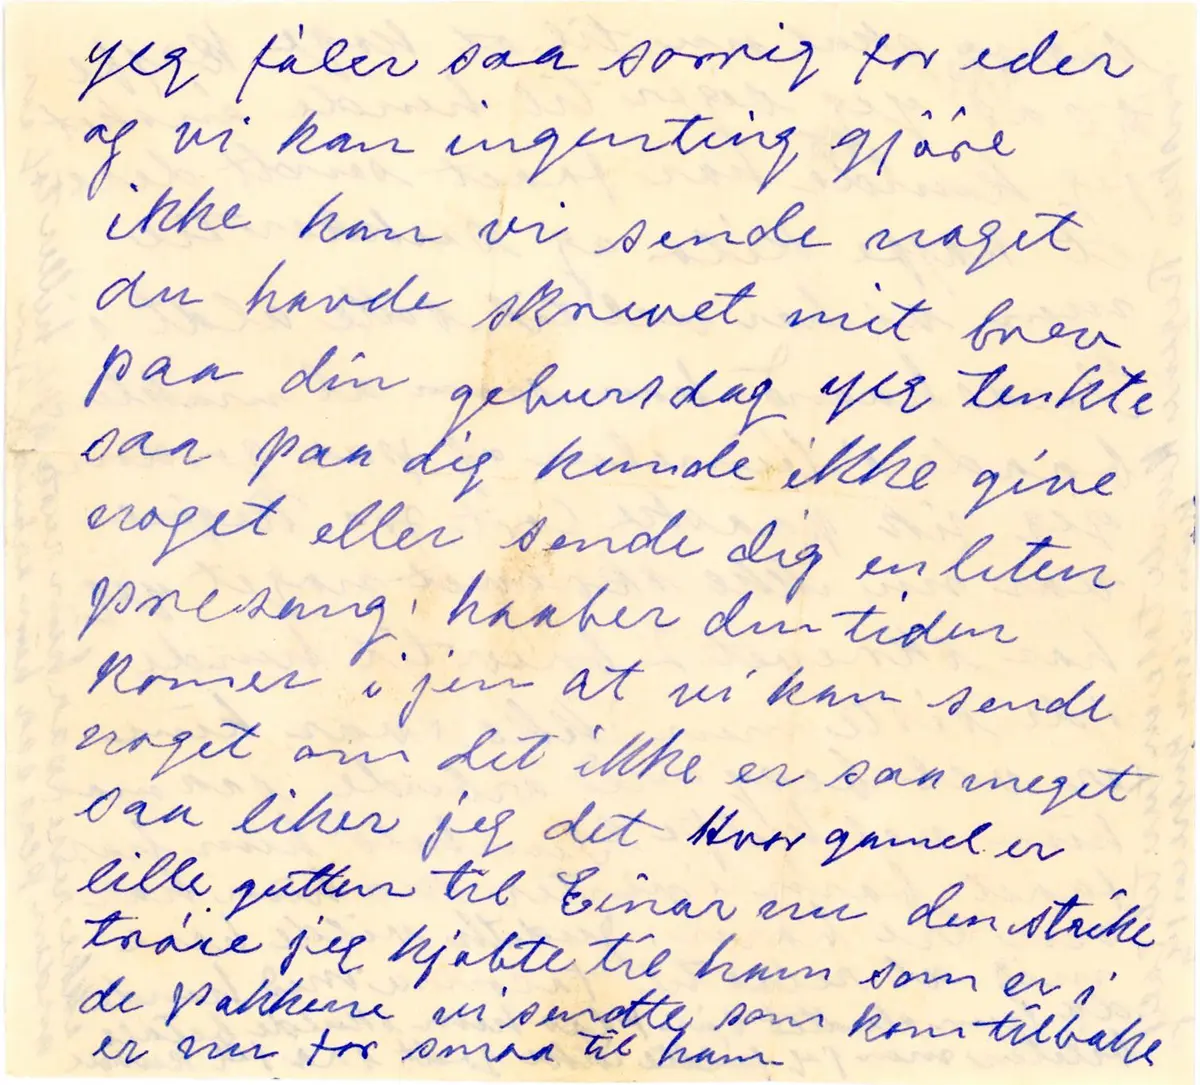 yeg føler saa sorrig for eder
og vi kan ingenting gjöre
ikke kan vi sende noget
du havde skrevet mit brev
paa din gebursdag yeg tenkte
saa paa dig kunde ikke give
noget eller sende dig en liten
presang, haaber den tiden
komer i jen at vi kan sende
noget om det ikke er saa meget
saa liker jeg det Hvor gamel er
lille gutten til Einar nu den strike
tröie jeg kjöbte til ham som er i
de pakkene vi sendte som kom tilbake
er nu for smaa til ham